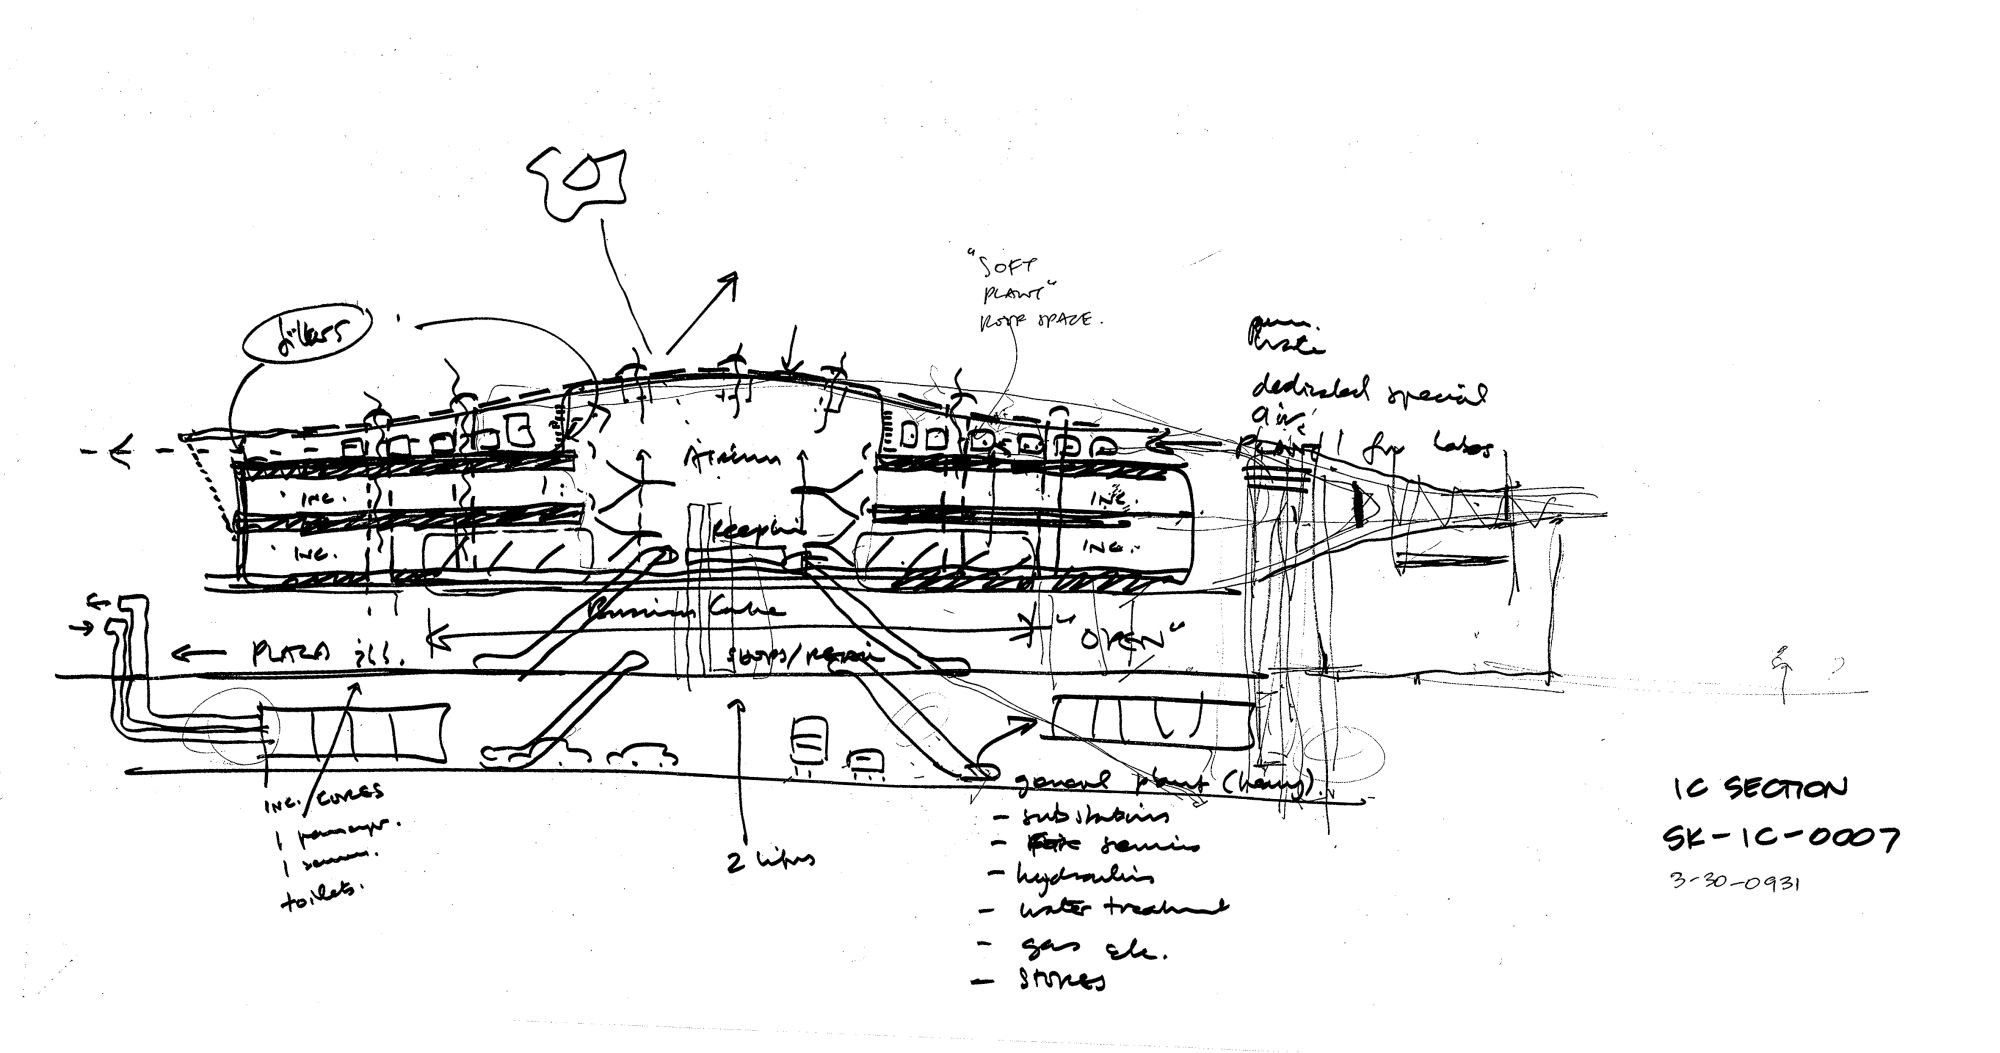 "SOFT
PLANT"
ROOF SPACE.
filters
dedicated special
air
PLANT for Labs
Atrium
INC.
INC.
INC.
INC.
Business Centre
PLAZA
SHOPS/RETAIL
"OPEN"
INC. CORES
1 passenger.
1
toilets.
2 lifts
general plant (heavy).
- substations
-
- hydraulics
- water treatment
- gas etc.
- STORES
IC SECTION
SK-IC-0007
3-30-0931